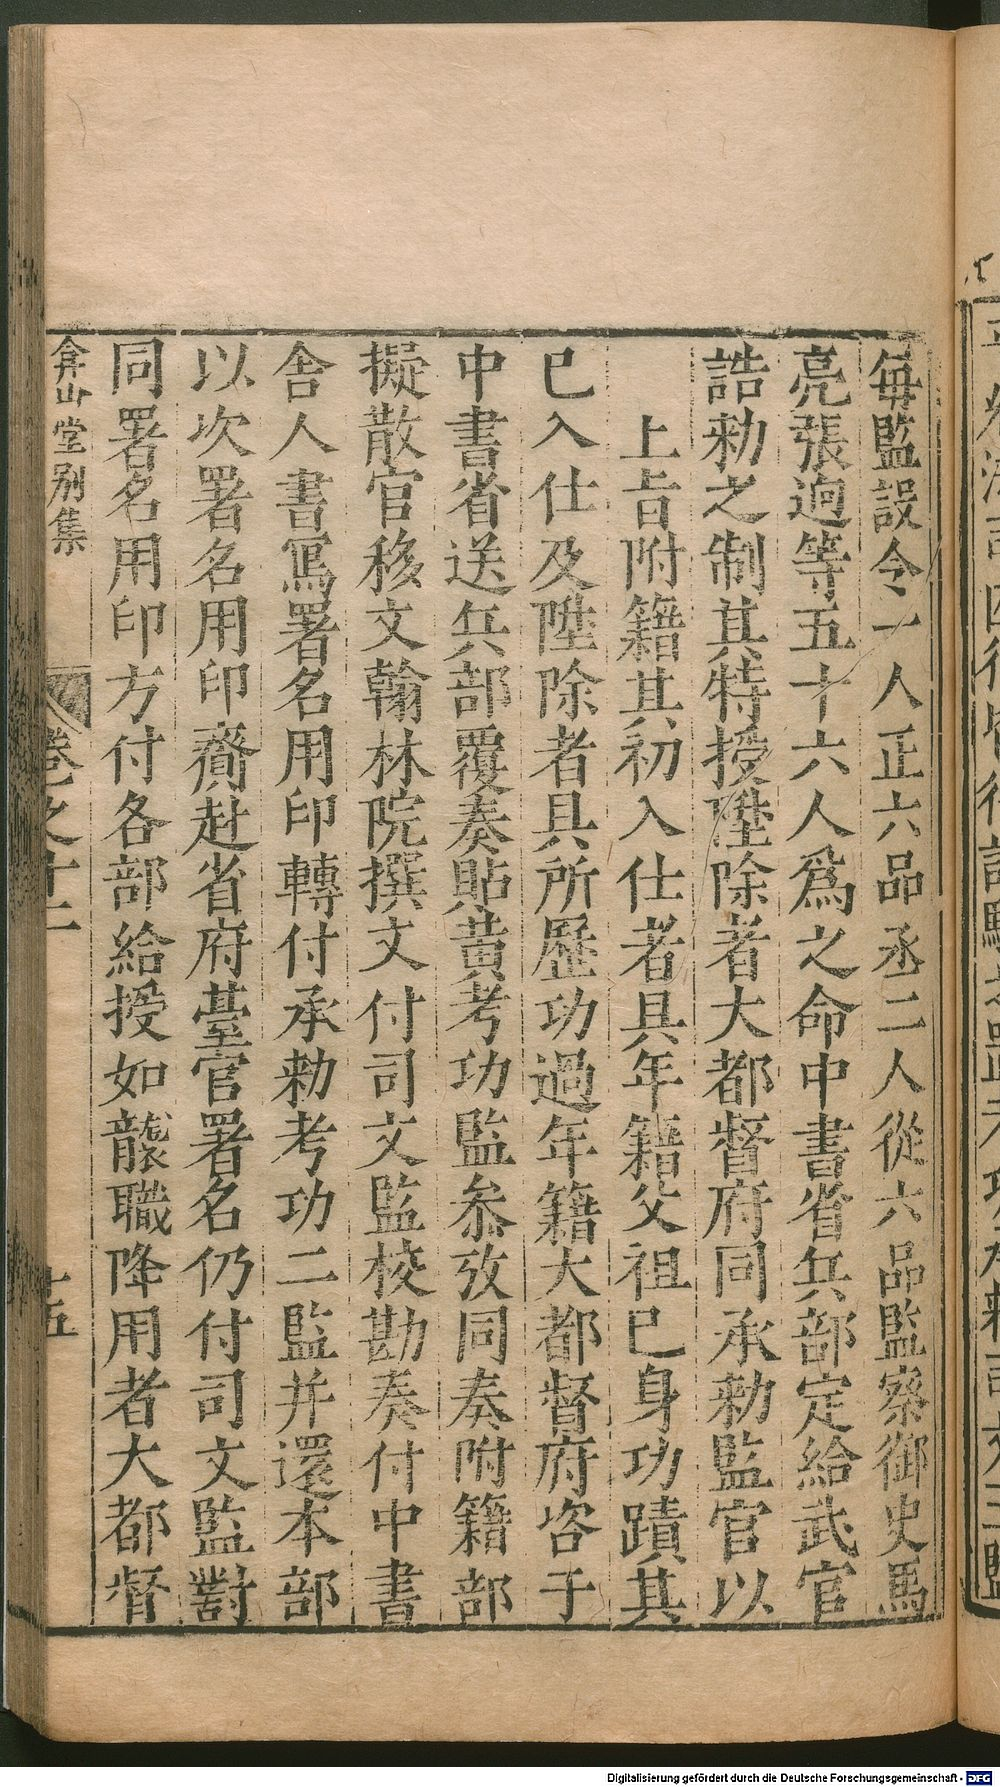 每監設令一人正六品丞二人從六品監察御史馬
亮張逈等五十六人爲之命中書省兵部定給武官
誥勑之制其特授陞除者大都督府同承勑監官以
上旨附籍其初入仕者具年籍父祖已身功蹟其
已入仕及陞除者具所歷功過年籍大都督府咨于
中書省送兵部覆奏貼黃考功監叅攷同奏附籍部
擬散官移文翰林院撰文付司文監校勘奏付中書
舍人書寫署名用印轉付承勑考功二監并還本部
以次署名用印齎赴省府臺官署名仍付司文監對
同署名用印方付各部給授如襲職降用者大都督
弇山堂別集
卷之十二
十五
Digitalisierung gefördert durch die Deutsche Forschungsgemeinschaft - DFG